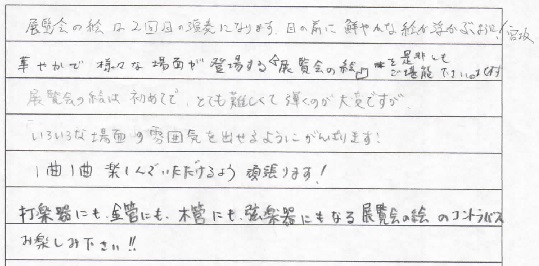 展覧会の絵は2回目の演奏になります。目の前に鮮やかな絵が浮かぶように! 宮坂
華やかで様々な場面が登場する『展覧会の絵』を是非とも ご堪能下さい。
展覧会の絵は初めてで、とても難しくて弾くのが大変ですが、
いろいろな場面の雰囲気を出せるようにがんばります!
1曲1曲楽しんでいただけるよう頑張ります!
打楽器にも、金管にも、木管にも、弦楽器にもなる展覧会の絵のコントラバス
お楽しみ下さい!!